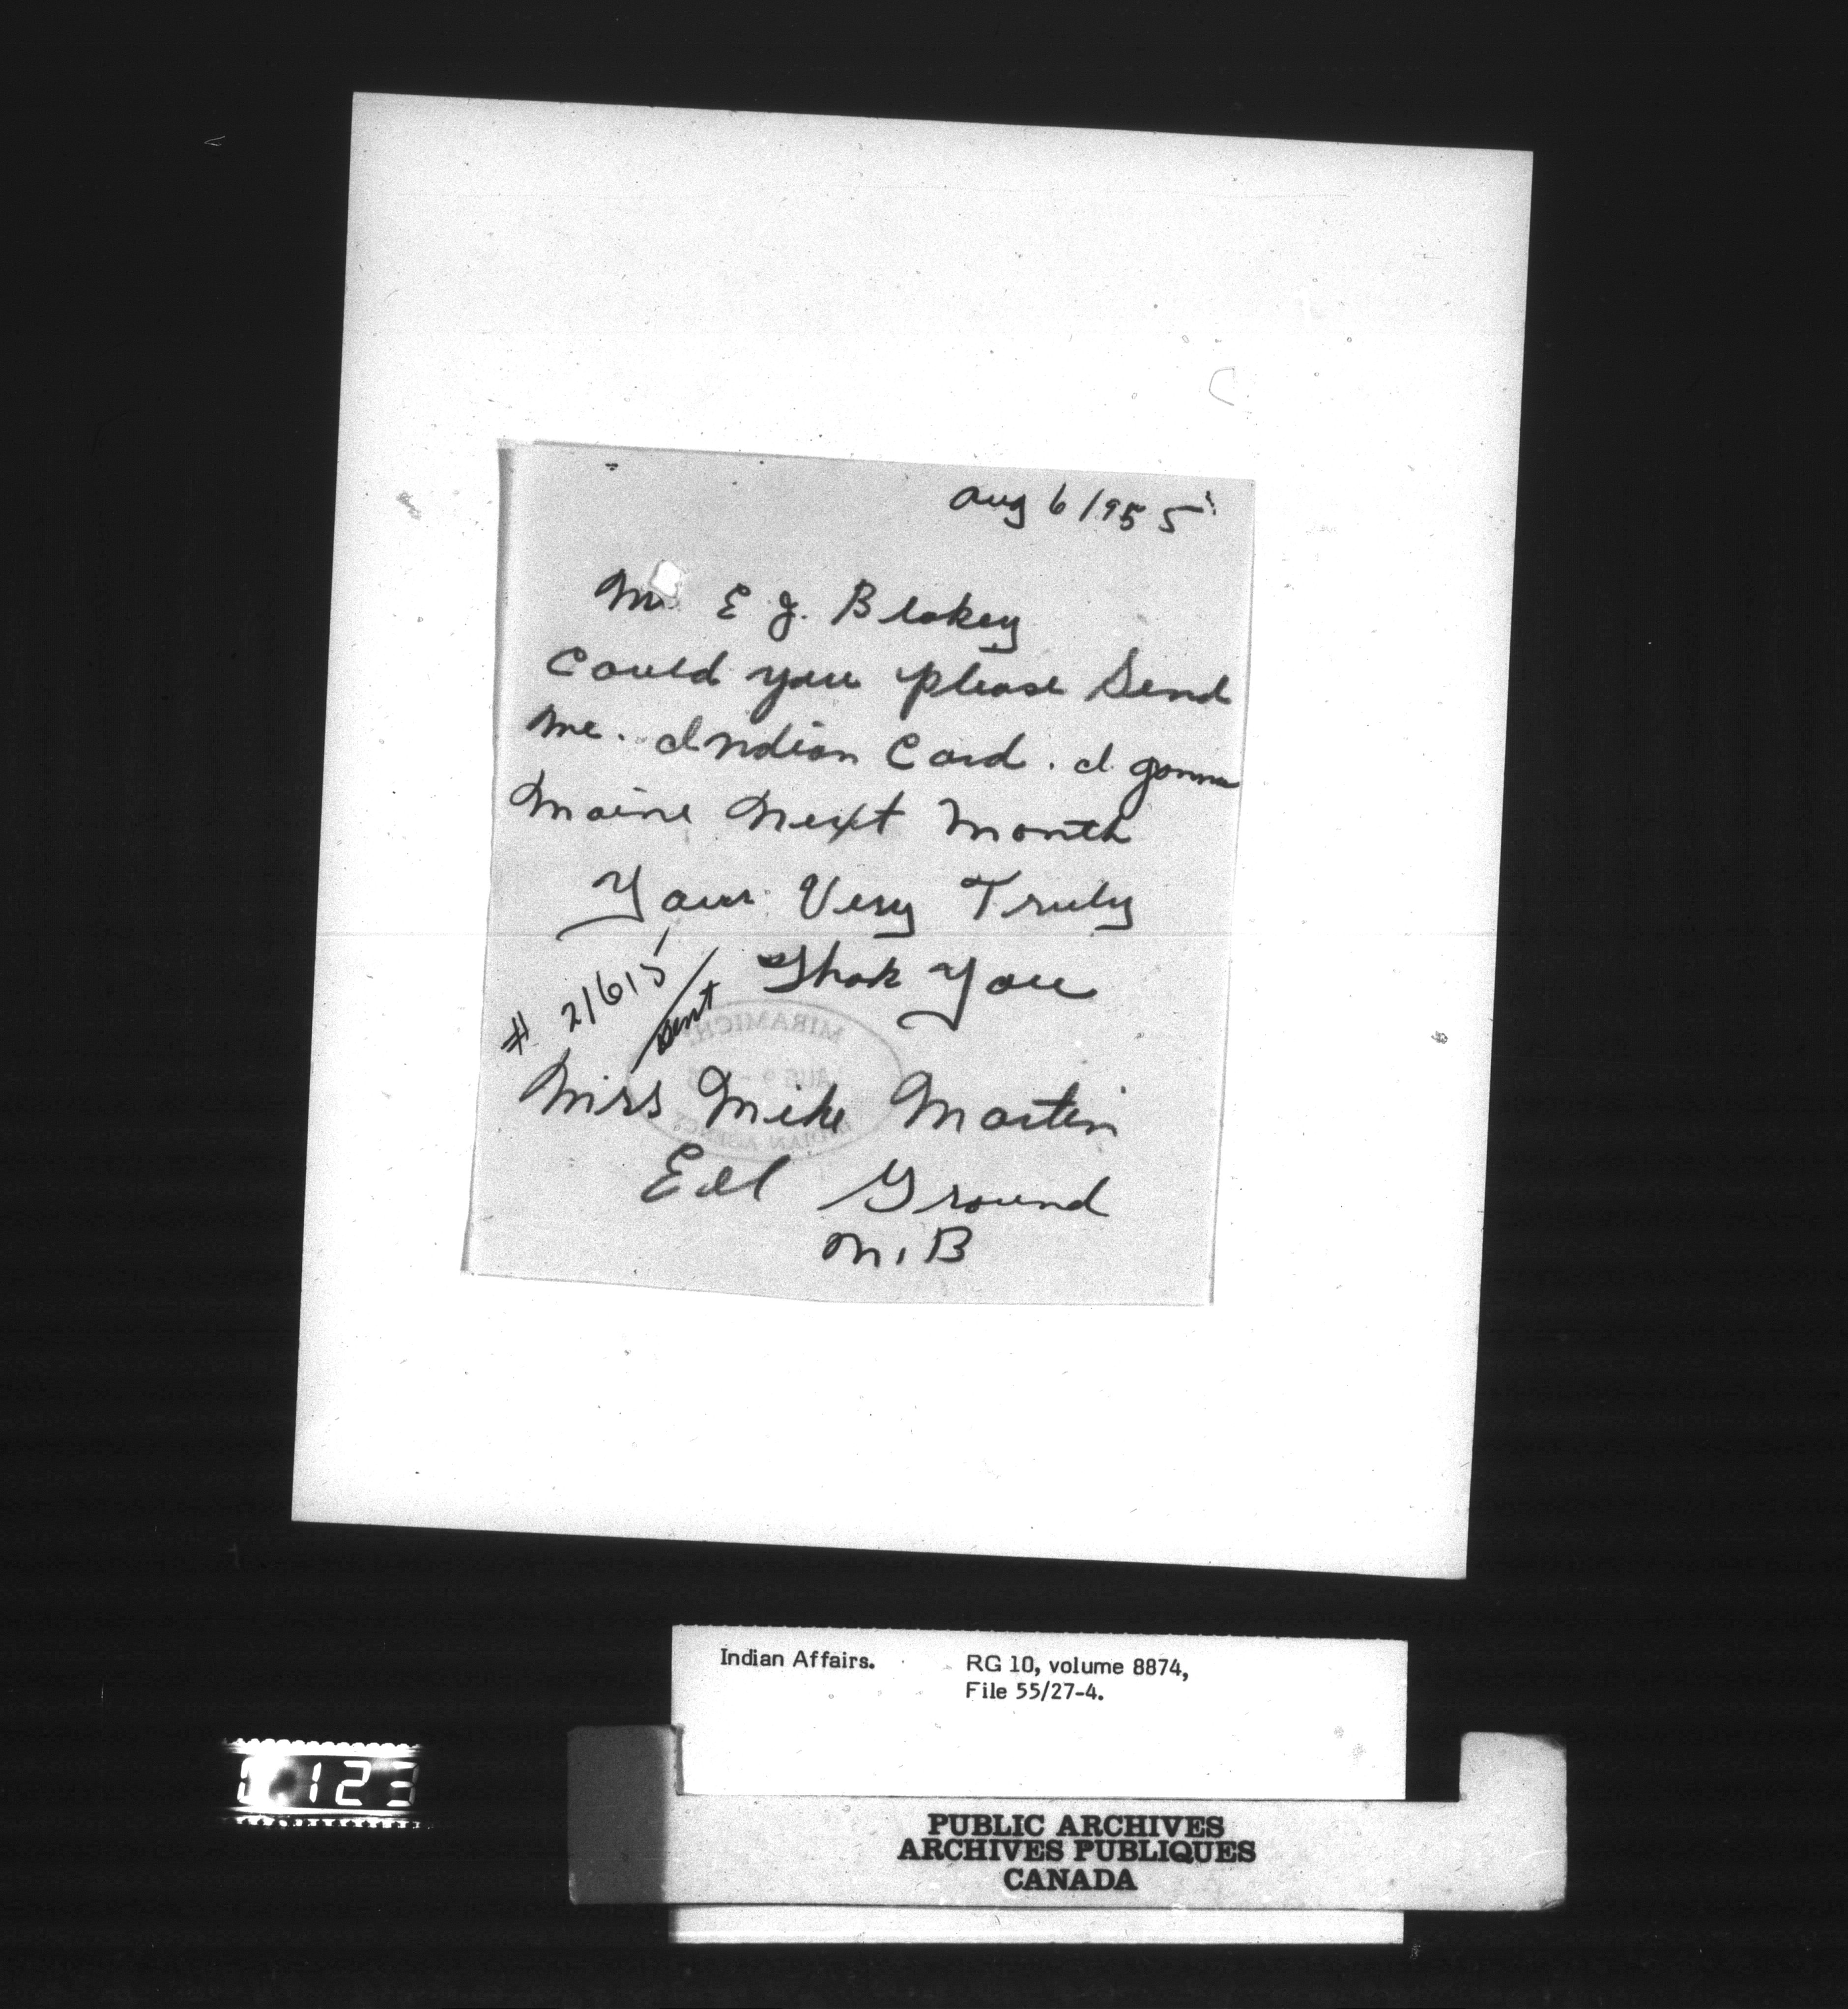 Aug 6 1955
Mr E J. Blakey
Could you please Send
me. Indian Card. I gonna
Maine Next Month
Your Very Truly
Thak You
# 21615
sent
MIRAMICHI
AUG 9
INDIAN AGENCY
Miss Mike Martin
Eel Ground
N.B
Indian Affairs. RG 10, volume 8874,
File 55/27-4.
123
PUBLIC ARCHIVES
ARCHIVES PUBLIQUES
CANADA